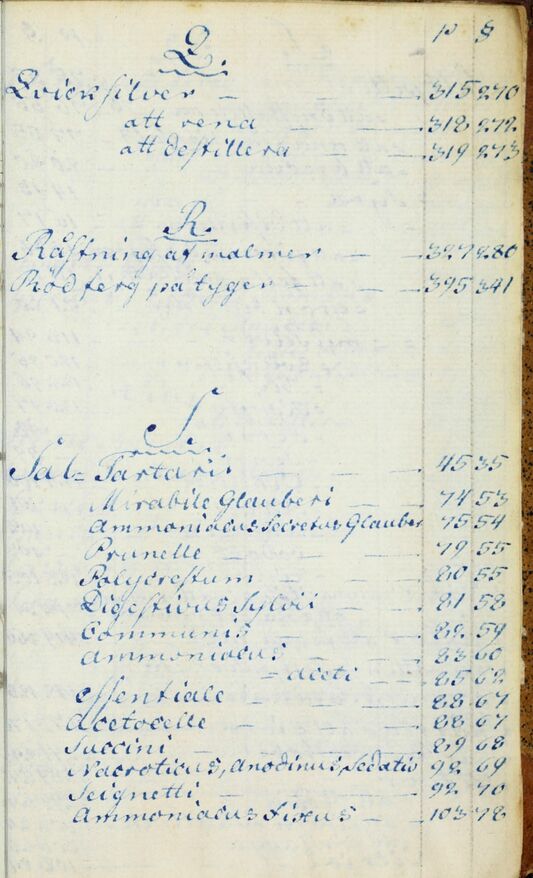 p §
Q.
Qvicksilver - - 315 270
att rena - - 318 272
att destillera - - 319 273
R.
Råstning af malmer - - 327 280
Röd ferg på tyger - - 395 341
S.
Sal= Tartarii - - 45 35
Mirabile Glauberi - - 74 53
Ammoniacus Secretus Glauber 75 54
Prunelle - - 79 55
Polycrestum - - 80 55
Digestivus Sylvii - - 81 58
Communis - - 82 59
Ammoniacus - - 83 60
- aceti - 85 62
essentiale - - 88 67
Acetocelle - - 88 67
Succini - - 89 68
Nacroticus, Anodinus, Sedativ 92 69
Seignetti - - 92 70
Ammoniacus fixus - - 103 78